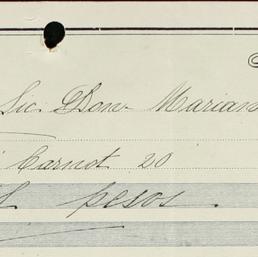 Lic. Don Marian
Carnot 20
pesos.